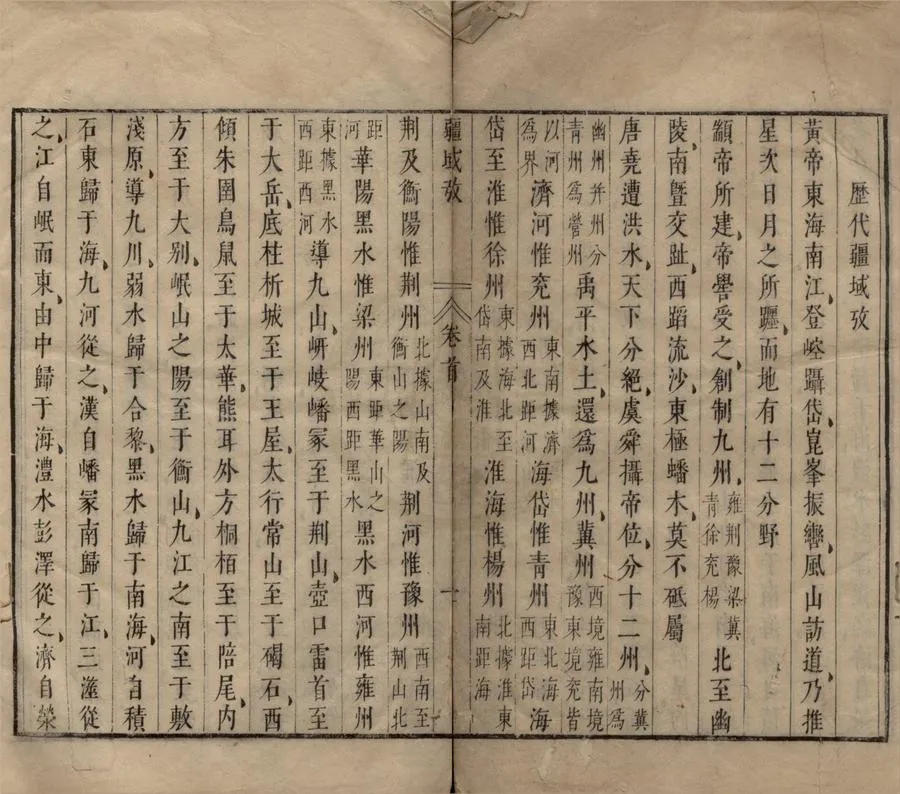 歷代疆域攷
黃帝東海南江登崆躡岱崑峯振轡風山訪道乃推
星次日月之所躔而地有十二分野
顓帝所建帝嚳受之創制九州雍荆豫梁冀青徐兗楊北至幽
陵南曁交趾西蹈流沙東極蟠木莫不砥屬
唐堯遭洪水天下分絕虞舜攝帝位分十二州分冀州爲
幽州并州分青州爲營州禹平水土還爲九州冀州西境雍南境豫東境兗皆
以河爲界濟河惟兗州東南據濟西北距河海岱惟青州東北海西距岱海
岱至淮惟徐州東據海北至岱南及淮淮海惟楊州北據淮東南距海
疆域攷 卷首 一
荆及衡陽惟荆州北據山南及衡山之陽荆河惟豫州西南至荆山北
距河華陽黑水惟梁州東距華山之陽西距黑水黑水西河惟雍州
東據黑水西距西河導九山岍岐嶓冢至于荆山壺口雷首至
于大岳底柱析城至于王屋太行常山至于碣石西
傾朱圉鳥鼠至于太華熊耳外方桐栢至于陪尾内
方至于大别岷山之陽至于衡山九江之南至于敷
淺原導九川弱水歸于合黎黑水歸于南海河自積
石東歸于海九河從之漢自嶓冢南歸于江三澨從
之江自岷而東由中歸于海澧水彭澤從之濟自滎